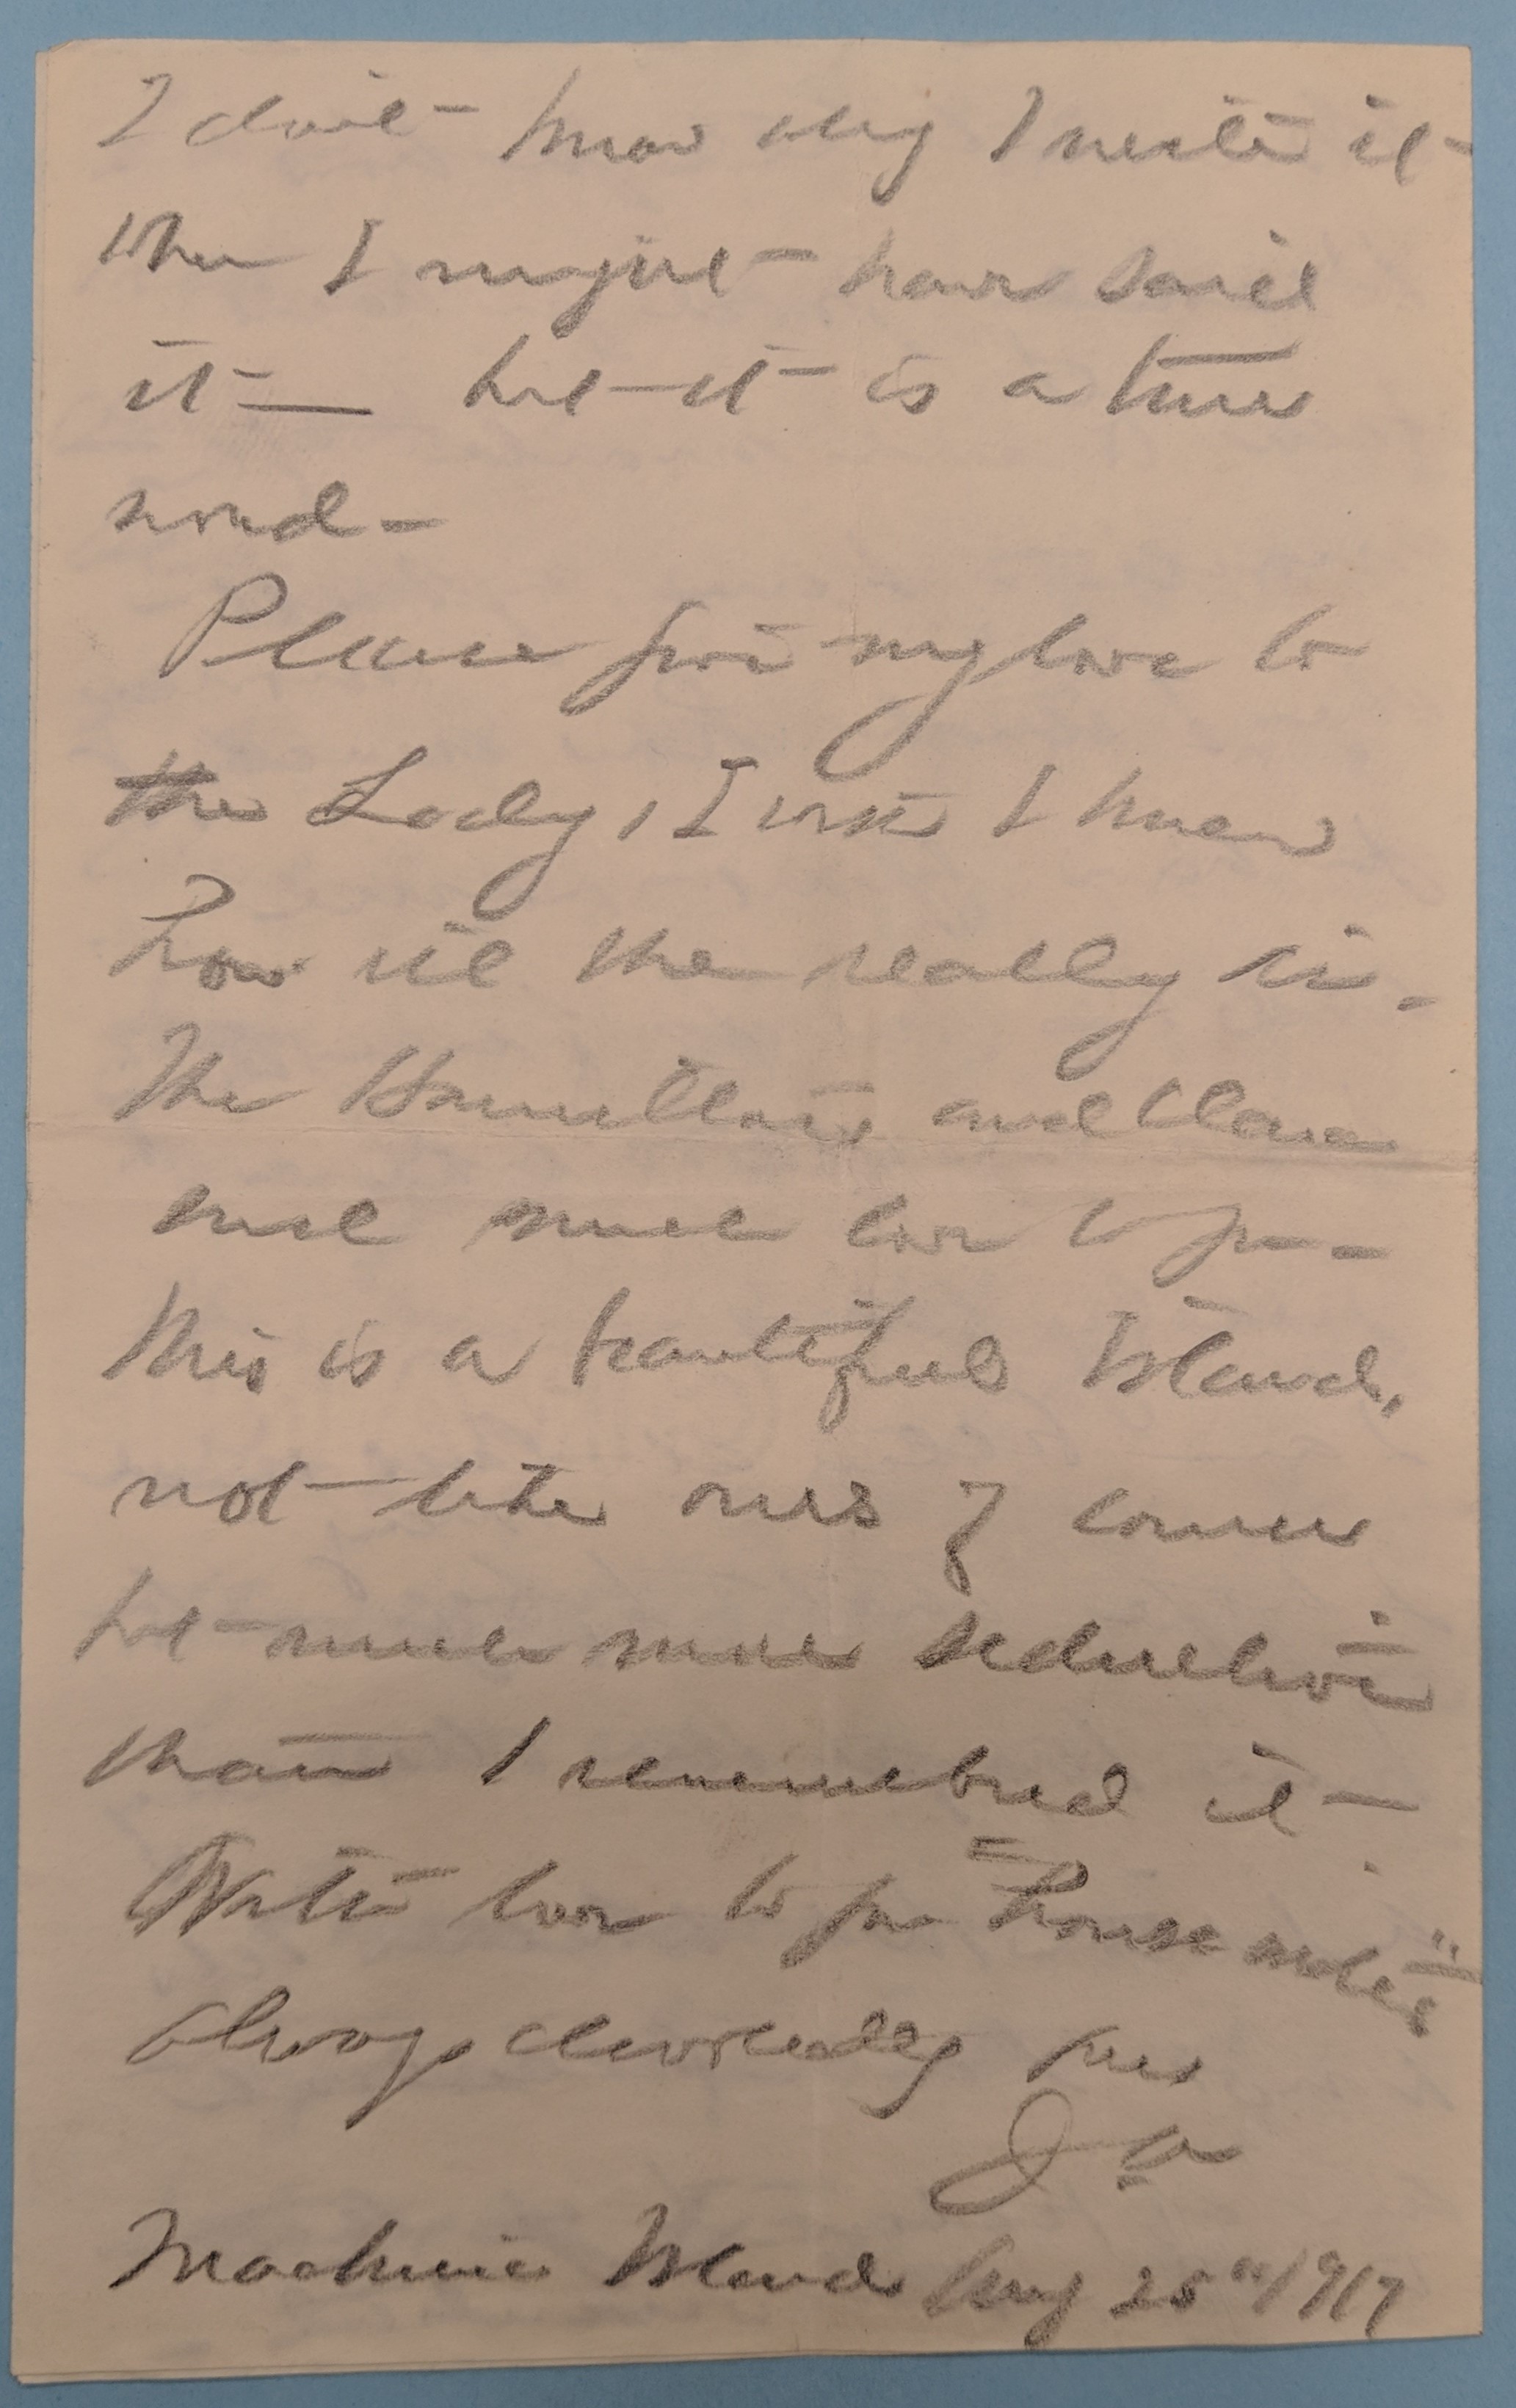 I don't know why I write it
when I might have said
it — but it is a true
word -
Please give my love to
the Lady, I wish I knew
how ill she really is -
The Hamiltons and Clara
send much love to you -
This is a beautiful Island,
not like ours of course
but much more seductive
than I remembered it -
With love to you house mates
always devotedly yours
J A
Mackinac Island Aug 25" 1917